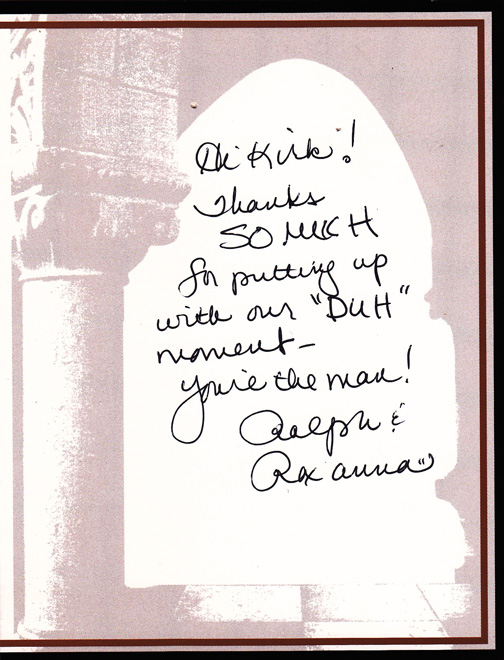 Hi Kirk!
Thanks
SO MUCH
for putting up
with our "DUH"
moment -
you're the man!
Ralph &
Roxanna